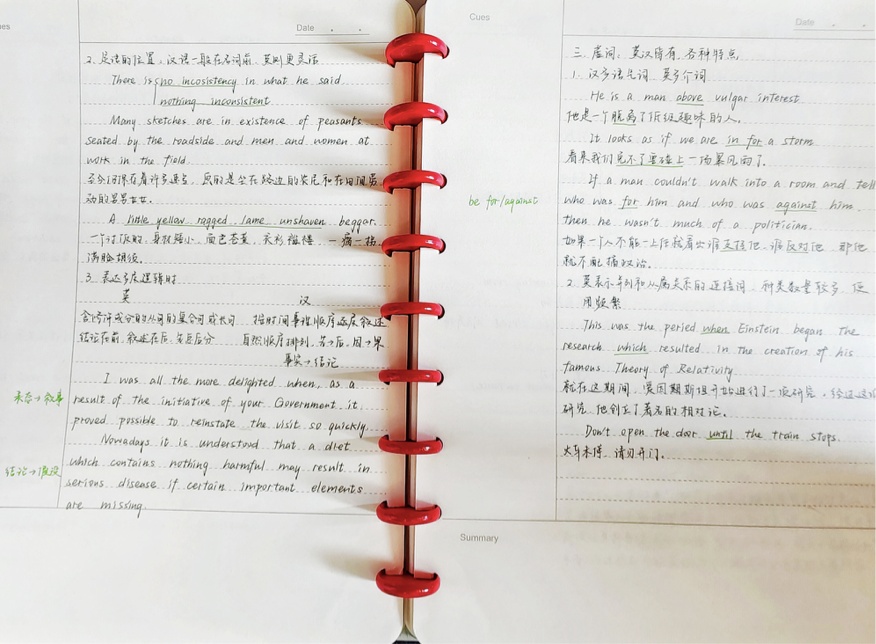 Date
2. 定语的位置，汉语一般在名词前，英则更灵活
There is no incosistency in what he said
nothing inconsistent
Many sketches are in existence of peasants
seated by the roadside and men and women at
work in the field.
至今仍保存着许多速写，画的是坐在路边的农民和在田间劳
动的男男女女。
A little yellow ragged lame unshaven beggar.
一个讨饭的，身材短小，面色苍黄，衣衫褴褛，一瘸一拐，
满脸胡须。
3. 表达多层逻辑时
英 汉
含修饰成分的从句的复合句或长句 按时间事理顺序逐层叙述
结论在前，叙述在后，先总后分 自然顺序排列，先→后，因→果
事实→结论
表态→叙事
I was all the more delighted when, as a
result of the initiative of your Government it
proved possible to reinstate the visit so quickly.
Nowadays it is understood that a diet
结论→假设
which contains nothing harmful may result in
serious disease if certain important elements
are missing.
Cues
Date
三. 虚词，英汉皆有，各种特点
1. 汉多语气词，英多介词
He is a man above vulgar interest
他是一个脱离了低级趣味的人。
It looks as if we are in for a storm.
看来我们免不了要碰上一场暴风雨了。
be for/against
If a man couldn't walk into a room and tell
who was for him and who was against him,
then he wasn't much of a politician.
如果一个人不能一上任就看出谁支持他，谁反对他，那他
就不配搞政治。
2. 英表示并列和从属关系的连接词，种类数量较多，使
用频繁
This was the period when Einstein began the
research which resulted in the creation of his
famous Theory of Relativity
就在这期间，爱因斯坦开始进行了一项研究，经过这项
研究，他创立了著名的相对论。
Don't open the door until the train stops.
火车未停，请勿开门。
Summary